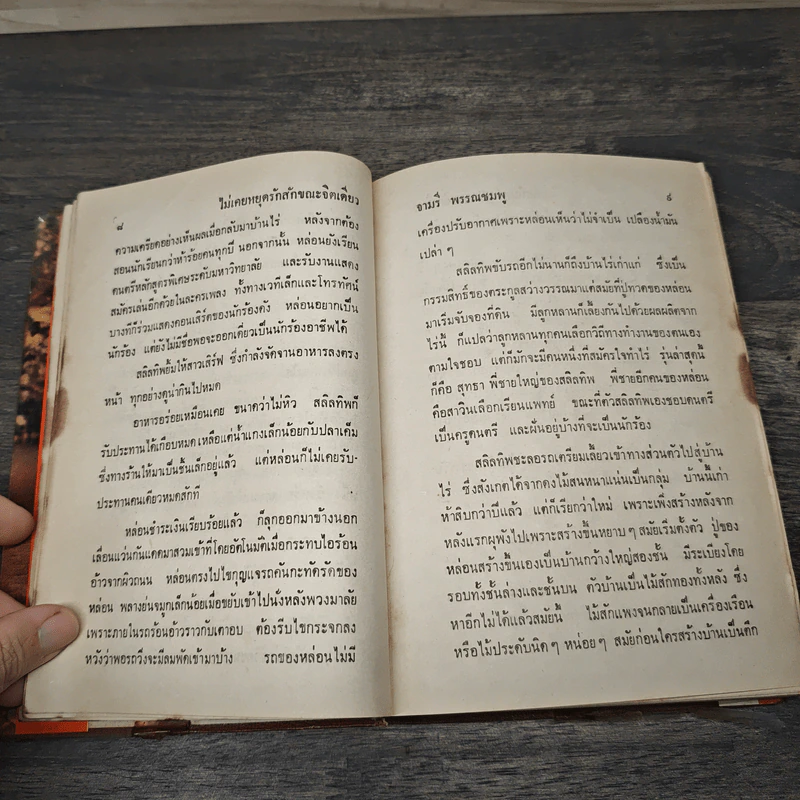 ไม่เคยหยุดรักสักขณะจิตเดียว
๘
ความเครียดอย่างเห็นผลเมื่อกลับมาบ้านไร่ หลังจากต้อง
สอนนักเรียนกว่าห้าร้อยคนทุกปี นอกจากนั้น หล่อนยังเรียน
ดนตรีหลักสูตรพิเศษระดับมหาวิทยาลัย และรับงานแสดง
สมัครเล่นอีกด้วยในละครเพลง ทั้งทางเวทีเล็กและโทรทัศน์
บางทีก็ร่วมแสดงคอนเสิร์ตของนักร้องดัง หล่อนอยากเป็น
นักร้อง แต่ยังไม่มีชื่อพอจะออกเดี่ยวเป็นนักร้องอาชีพได้
สลิลทิพยิ้มให้สาวเสิร์ฟ ซึ่งกำลังจัดจานอาหารลงตรง
หน้า ทุกอย่างดูน่ากินไปหมด
อาหารอร่อยเหมือนเคย ขนาดว่าไม่หิว สลิลทิพก็
รับประทานได้เกือบหมด เหลือแต่น้ำแกงเล็กน้อยกับปลาเค็ม
ซึ่งทางร้านให้มาเป็นชิ้นเล็กอยู่แล้ว แต่หล่อนก็ไม่เคยรับ-
ประทานคนเดียวหมดสักที
หล่อนชำระเงินเรียบร้อยแล้ว ก็ลุกออกมาข้างนอก
เลื่อนแว่นกันแดดมาสวมเข้าที่โดยอัตโนมัติเมื่อกระทบไอร้อน
อ้าวจากผิวถนน หล่อนตรงไปไขกุญแจรถคันกะทัดรัดของ
หล่อน พลางย่นจมูกเล็กน้อยเมื่อขยับเข้าไปนั่งหลังพวงมาลัย
เพราะภายในรถร้อนอ้าวราวกับเตาอบ ต้องรีบไขกระจกลง
หวังว่าพอรถวิ่งจะมีลมพัดเข้ามาบ้าง รถของหล่อนไม่มี
จามรี พรรณชมพู
๙
เครื่องปรับอากาศเพราะหล่อนเห็นว่าไม่จำเป็น เปลืองน้ำมัน
เปล่า ๆ
สลิลทิพขับรถอีกไม่นานก็ถึงบ้านไร่เก่าแก่ ซึ่งเป็น
กรรมสิทธิ์ของตระกูลสว่างวรรณมาแต่สมัยที่ปู่ทวดของหล่อน
มาเริ่มจับจองที่ดิน มีลูกหลานก็เลี้ยงกันไปด้วยผลผลิตจาก
ไร่นี้ ก็แปลว่าลูกหลานทุกคนเลือกวิถีทางทำงานของตนเอง
ตามใจชอบ แต่ก็มักจะมีคนหนึ่งที่สมัครใจทำไร่ รุ่นล่าสุดนี้
ก็คือ สุทธา พี่ชายใหญ่ของสลิลทิพ พี่ชายอีกคนของหล่อน
คือสาวินเลือกเรียนแพทย์ ขณะที่ตัวสลิลทิพเองชอบดนตรี
เป็นครูดนตรี และฝันอยู่บ้างที่จะเป็นนักร้อง
สลิลทิพชะลอรถเตรียมเลี้ยวเข้าทางส่วนตัวไปสู่บ้าน
ไร่ ซึ่งสังเกตได้จากดงไม้สนหนาแน่นเป็นกลุ่ม บ้านนี้เก่า
ห้าสิบกว่าปีแล้ว แต่ก็เรียกว่าใหม่ เพราะเพิ่งสร้างหลังจาก
หลังแรกผุพังไปเพราะสร้างขึ้นหยาบ ๆ สมัยเริ่มตั้งตัว ปู่ของ
หล่อนสร้างขึ้นเองเป็นบ้านกว้างใหญ่สองชั้น มีระเบียงโดย
รอบทั้งชั้นล่างและชั้นบน ตัวบ้านเป็นไม้สักทองทั้งหลัง ซึ่ง
หาอีกไม่ได้แล้วสมัยนี้ ไม้สักแพงจนกลายเป็นเครื่องเรือน
หรือไม้ประดับนิด ๆ หน่อย ๆ สมัยก่อนใครสร้างบ้านเป็นตึก